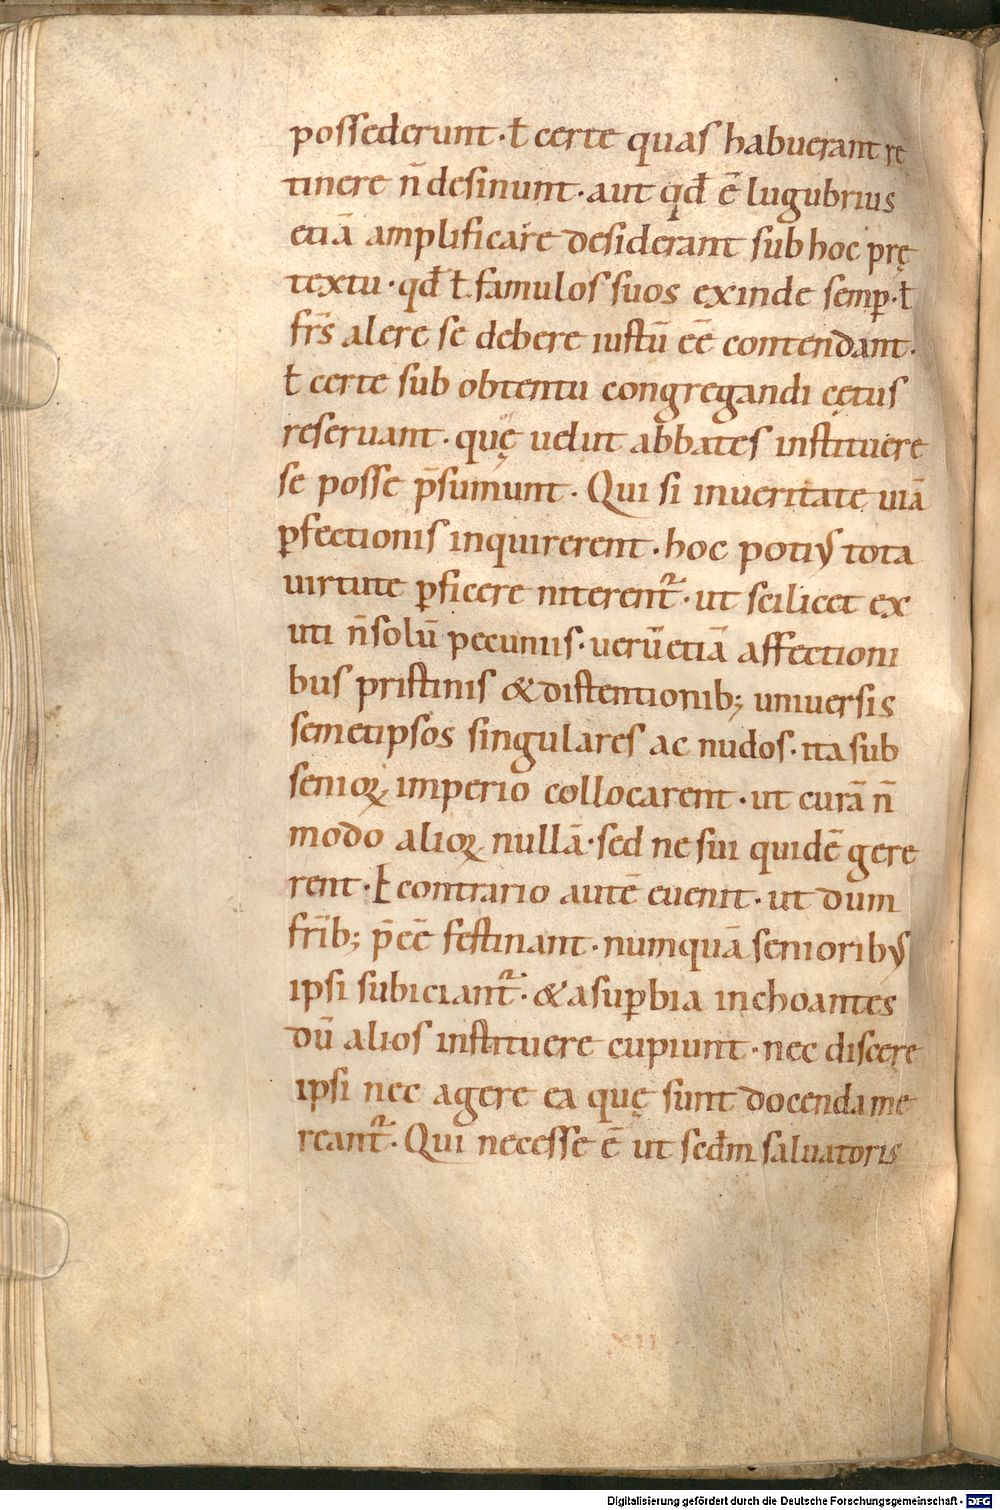 possederunt · ł certe quas habuerant re
tinere n̄ desinunt · aut qd̄ ē lugubrius
etiā amplificare desiderant sub hoc prę
textu · qd̄ ł famulos suos exinde semꝑ · ł
fr̄s alere se debere iustū eē contendant ·
ł certe sub obtentu congregandi cętus
reseruant · quę uelut abbates instituere
se posse p̄sumunt · Qui si inueritate uiā
ꝑfectionis inquirerent · hoc potiꝰ tota
uirtute ꝑficere niterent᷑ · ut scilicet ex
uti n̄ solū pecuniis · uerū etiā affectioni
bus pristinis & distentionib; uniuersis
semetipsos singulares ac nudos · ita sub
senioꝝ imperio collocarent · ut curā n̄
modo alioꝝ nullā · sed ne sui quidē gere
rent · E contrario autē euenit · ut dum
fr̄ib; p̄eē festinant · numquā senioribꝰ
ipsi subiciant᷑ · & asuꝑbia inchoantes
dū alios instituere cupiunt · nec discere
ipsi nec agere ea quę sunt docenda me
reant᷑ · Qui necesse ē ut secd̄m saluatoris
Digitalisierung gefördert durch die Deutsche Forschungsgemeinschaft - DFG